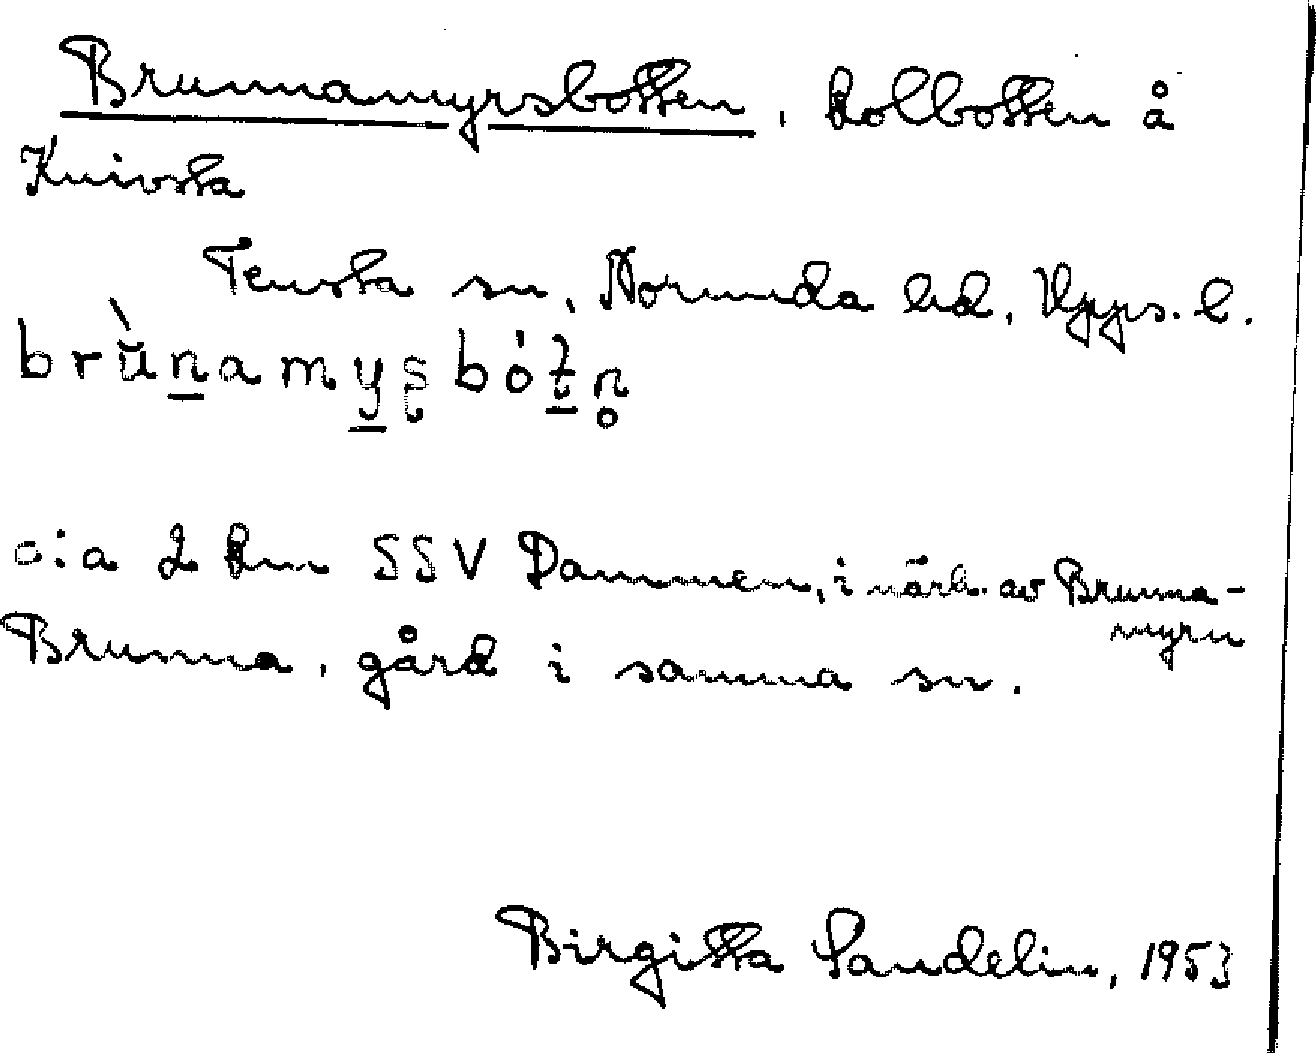 Brunnamyrsbotten, kolbotten å
Knivsta
Tensta sn, Norunda hd, Upps. l.
brùn̲amy̲ʂbót̲n̥
c:a 2 km SSV Dammen, i närh. av Brunna-
myrn
Brunna, gård i samma sn.
Birgitta Sandelin, 1953